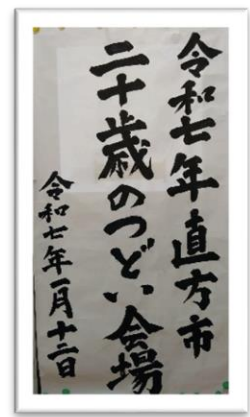 令和七年直方市
二十歳のつどい会場
令和七年一月十二日